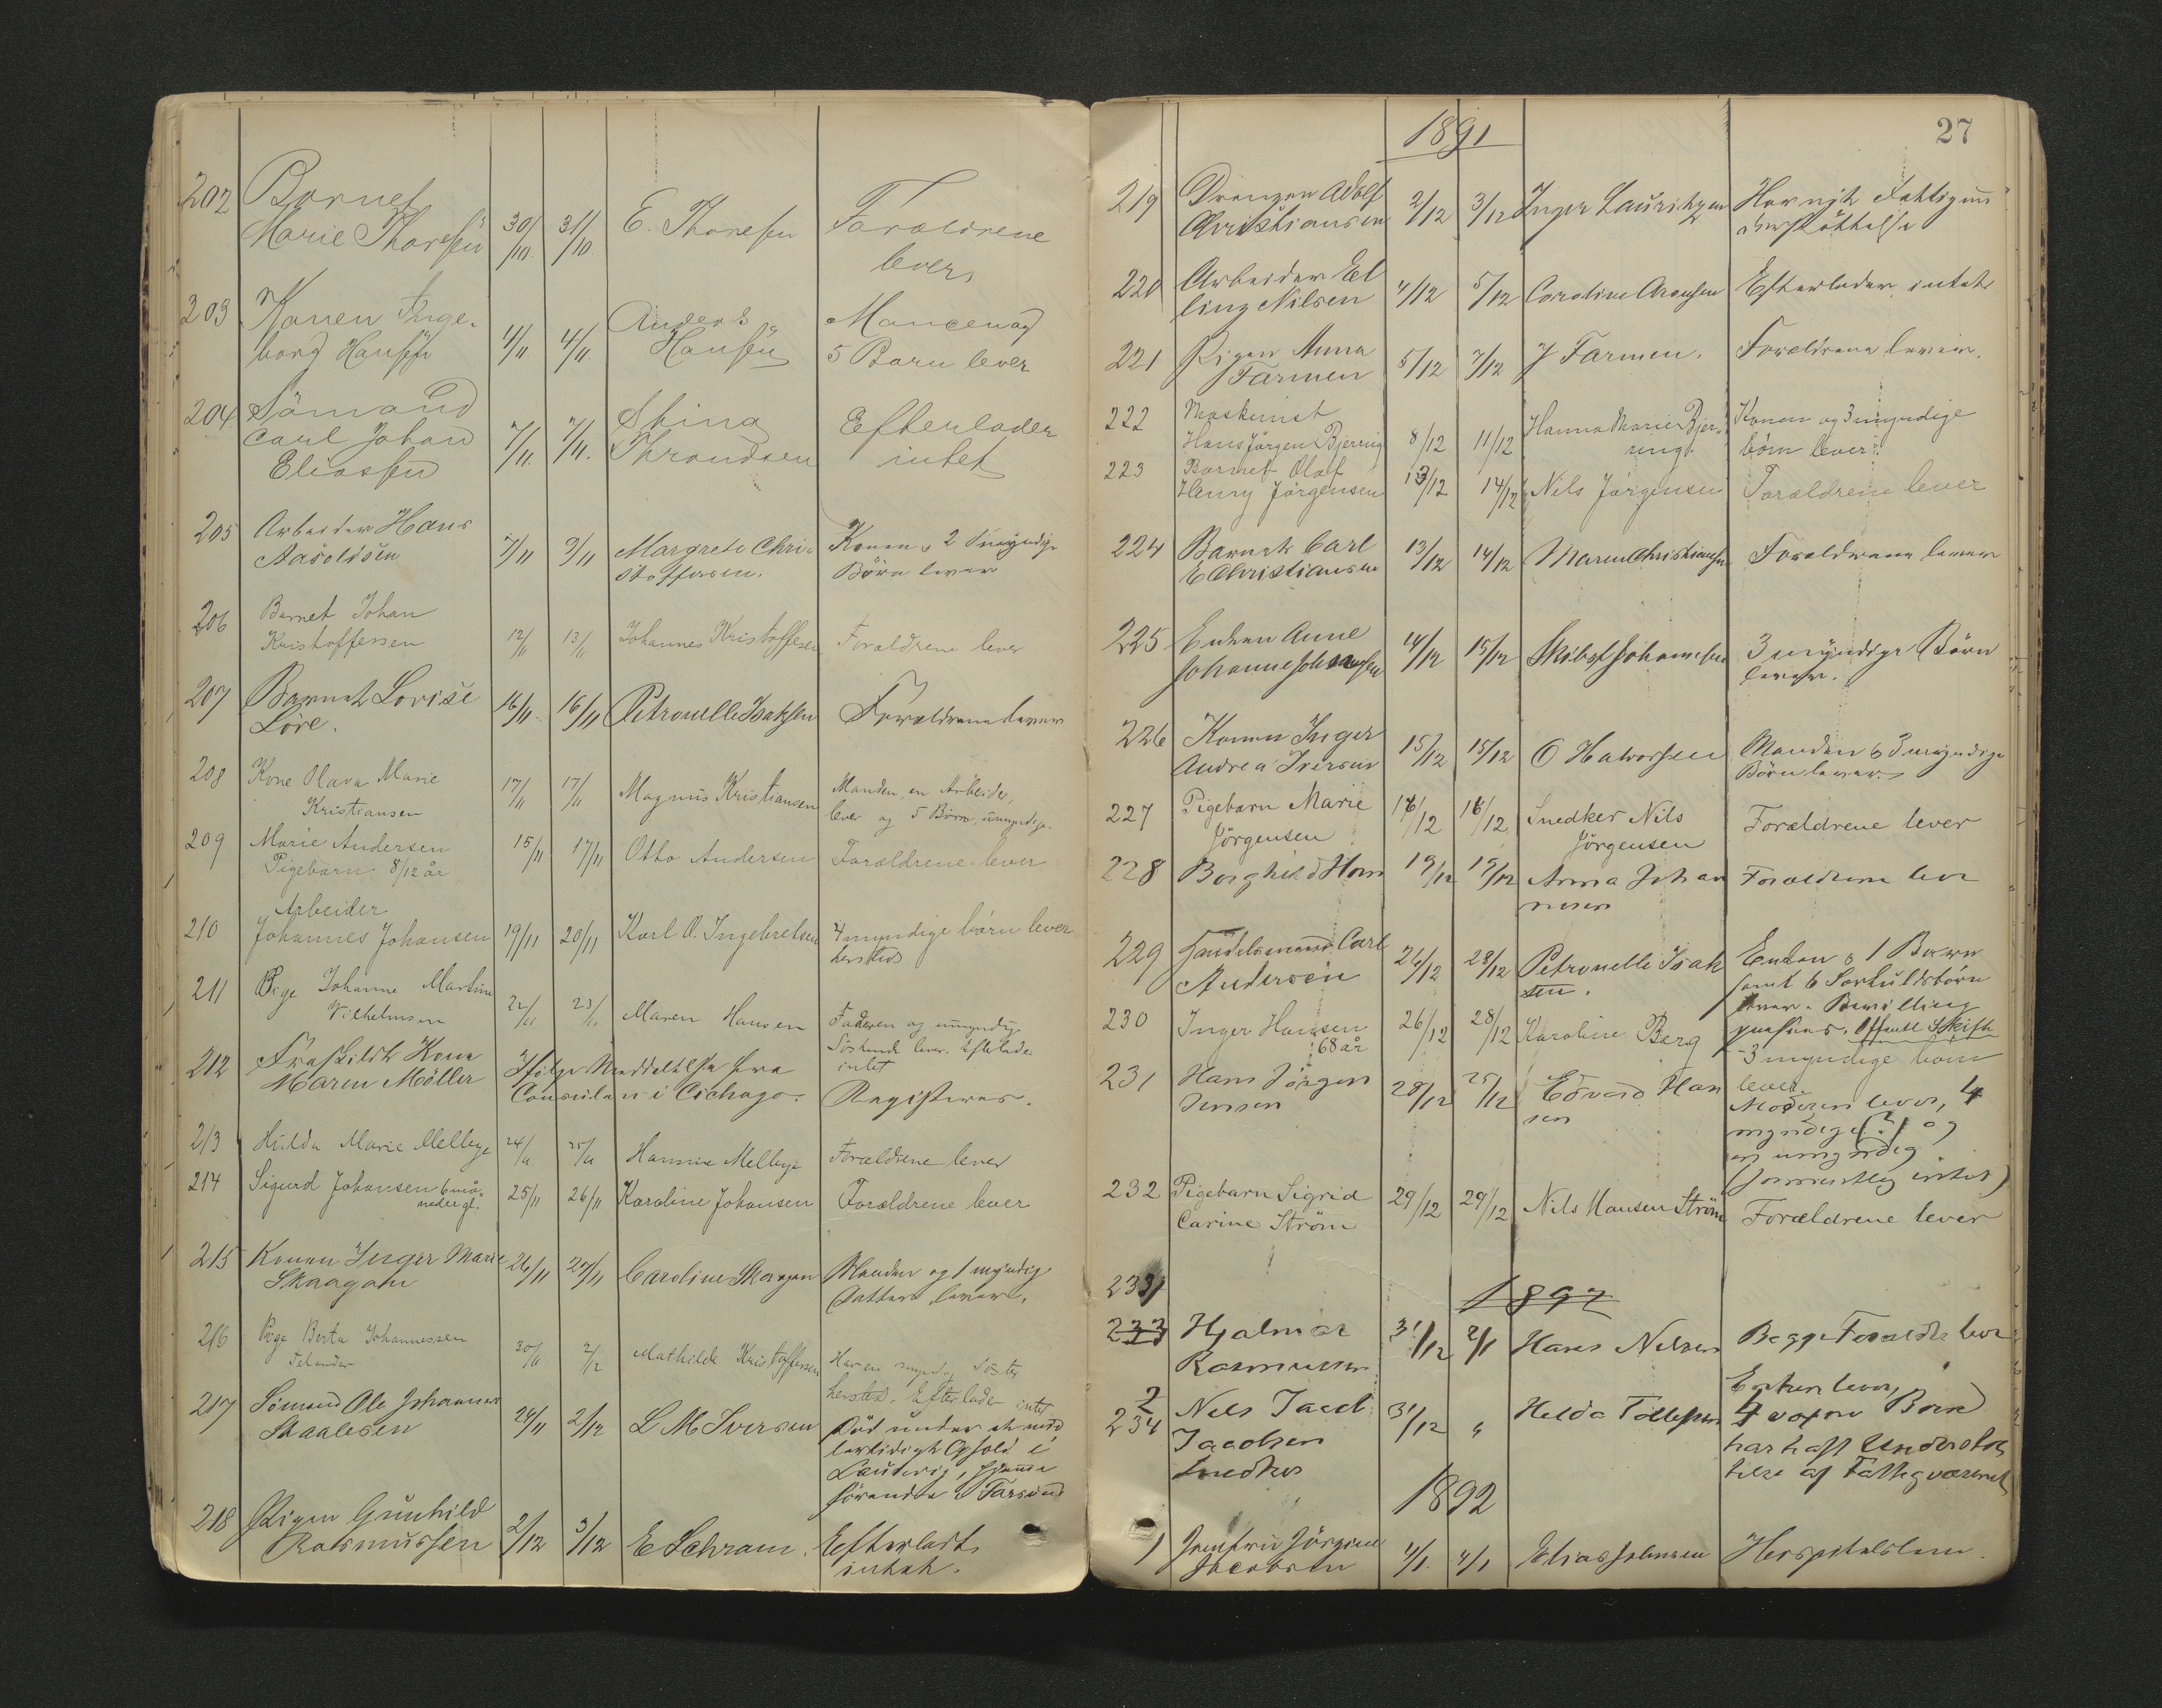 202 Barnet
Marie Thoresen 30/10 31/10 E. Thoresen Forældrene
lever,
203 Konen Inge-
borg Hansen 4/11 4/11 Anders Hansen Manden og
5 Børn lever
204 Sömand
Carl Johan
Eliassen 7/11 7/11 Stina Throndsen Efterlader
intet
205 Arbeider Hans
Aasoldsen 7/11 9/11 Margrete Chri-
stoffersen. Konen o 2 Umyndige
Börn lever
206 Barnet Johan
Kristoffessen 12/11 13/11 Johannes Kristoffesen Forældrene lever
207 Barnet Lovise
Löre. 16/11 16/11 Petronelle Isaksen Forældrene lever
208 Kone Olava Marie
Kristiansen 17/11 17/11 Magnus Kristiansen Manden, en Arbeider,
lever og 5 Börn, umyndige.
209 Marie Andersen
Pigebarn 8/12 år 15/11 17/11 Otto Andersen Forældrene lever
210 Arbeider
Johannes Johansen 19/11 20/11 Karl O. Ingebretsen 4 myndige børn lever
hersteds
211 Pige Johanne Martine
Vilhelmsen 22/11 23/11 Maren Hansen Faderen og umyndige
Söskende lever. Efterlader
intet
212 Fraskilt Kone
Maren Möller Ifölge Meddelelse fra
Consulen i Cichago. Registreres.
213 Hilda Marie Melbye 24/11 25/11 Hannine Melbye Forældrene lever
214 Sigurd Johansen 6 må-
neder gl. 25/11 26/11 Karoline Johansen Forældrene lever
215 Konen Inger Marie
Skaagan 26/11 27/11 Caroline Skaagan Manden og 1 myndig
Datter lever.
216 Pige Berta Johannessen
30/11 2/12 Mathilde Kristoffessen Har en mynd. Søster
hersteds. Efterlader intet
217 Sömand Ole Johannes
Skaalesen 24/11 2/12 L M Iversen Död under et mid
lertidigt Ophold i
Laurvig, hjemme
hörende i Farsund
218 Pigen Gunhild
Rasmussen 2/12 3/12 E Schram. Efterladt
intet.
27
1891
219 Drengen Adolf
Christiansen 2/12 3/12 Inger Lauritzen Har nydt Fattigun
derstöttelse
220 Arbeider El
ling Nilsen 4/12 5/12 Caroline Aronsen Efterlader intet
221 Pigen Anna
Farmen 5/12 7/12 J Farmen. Forældrene lever.
222 Maskinist
Hans Jörgen Bjerring 8/12 11/12 Hanna Marie Bjer-
ring. Konen og 3 myndige
børn lever
223 Barnet Olaf
Henry Jörgensen 13/12 14/12 Nils Jørgensen Forældrene lever
224 Barnet Carl
E Christiansen 13/12 14/12 Maren Christiansen Forældrene lever
225 Enken Anne
Johanne Johannesen 14/12 15/12 Skibsf Johannesen 3 myndige Börn
lever.
226 Konen Inger
Andrea Iversen 15/12 15/12 O Halvorsen Manden o 3 myndige
Börn lever
227 Pigebarn Marie
Jörgensen 16/12 16/12 Snedker Nils
Jörgensen Forældrene lever
228 Borghild Horn 19/12 19/12 Anna Johan
nesen Forældrene lever
229 Handelsmand Carl
Andersen 26/12 28/12 Petronelle Isak
sen. Enken o 1 Barn
samt 6 Særkuldsbörn
lever. Bevilling
Offentl Skifte
230 Inger Hansen
68 år 26/12 28/12 Karoline Berg 3 myndige børn
lever
231 Hans Jörgen
Jensen 28/12 29/12 Edvard Han
sen Moderen lever, 4
myndige (?) og
en umyndig
(formentlig intet)
232 Pigebarn Sigrid
Carine Strøm 29/12 29/12 Nils Hansen Strøm Forældrene lever
233
1892
233 Hjalmar
Rasmussen 31/12 2/1 Hans Nilsen Begge Forældre lever
234 Nils Jacob
Jacobsen
Snedker 31/12 " Helda Tollefsen Enken lever,
4 voxne Børn
har haft Understøt
telse af Fattigvæsenet
1892
1 Jomfru Jörgine
Jacobsen 4/1 4/1 Elias Johnsen Hospitalslem